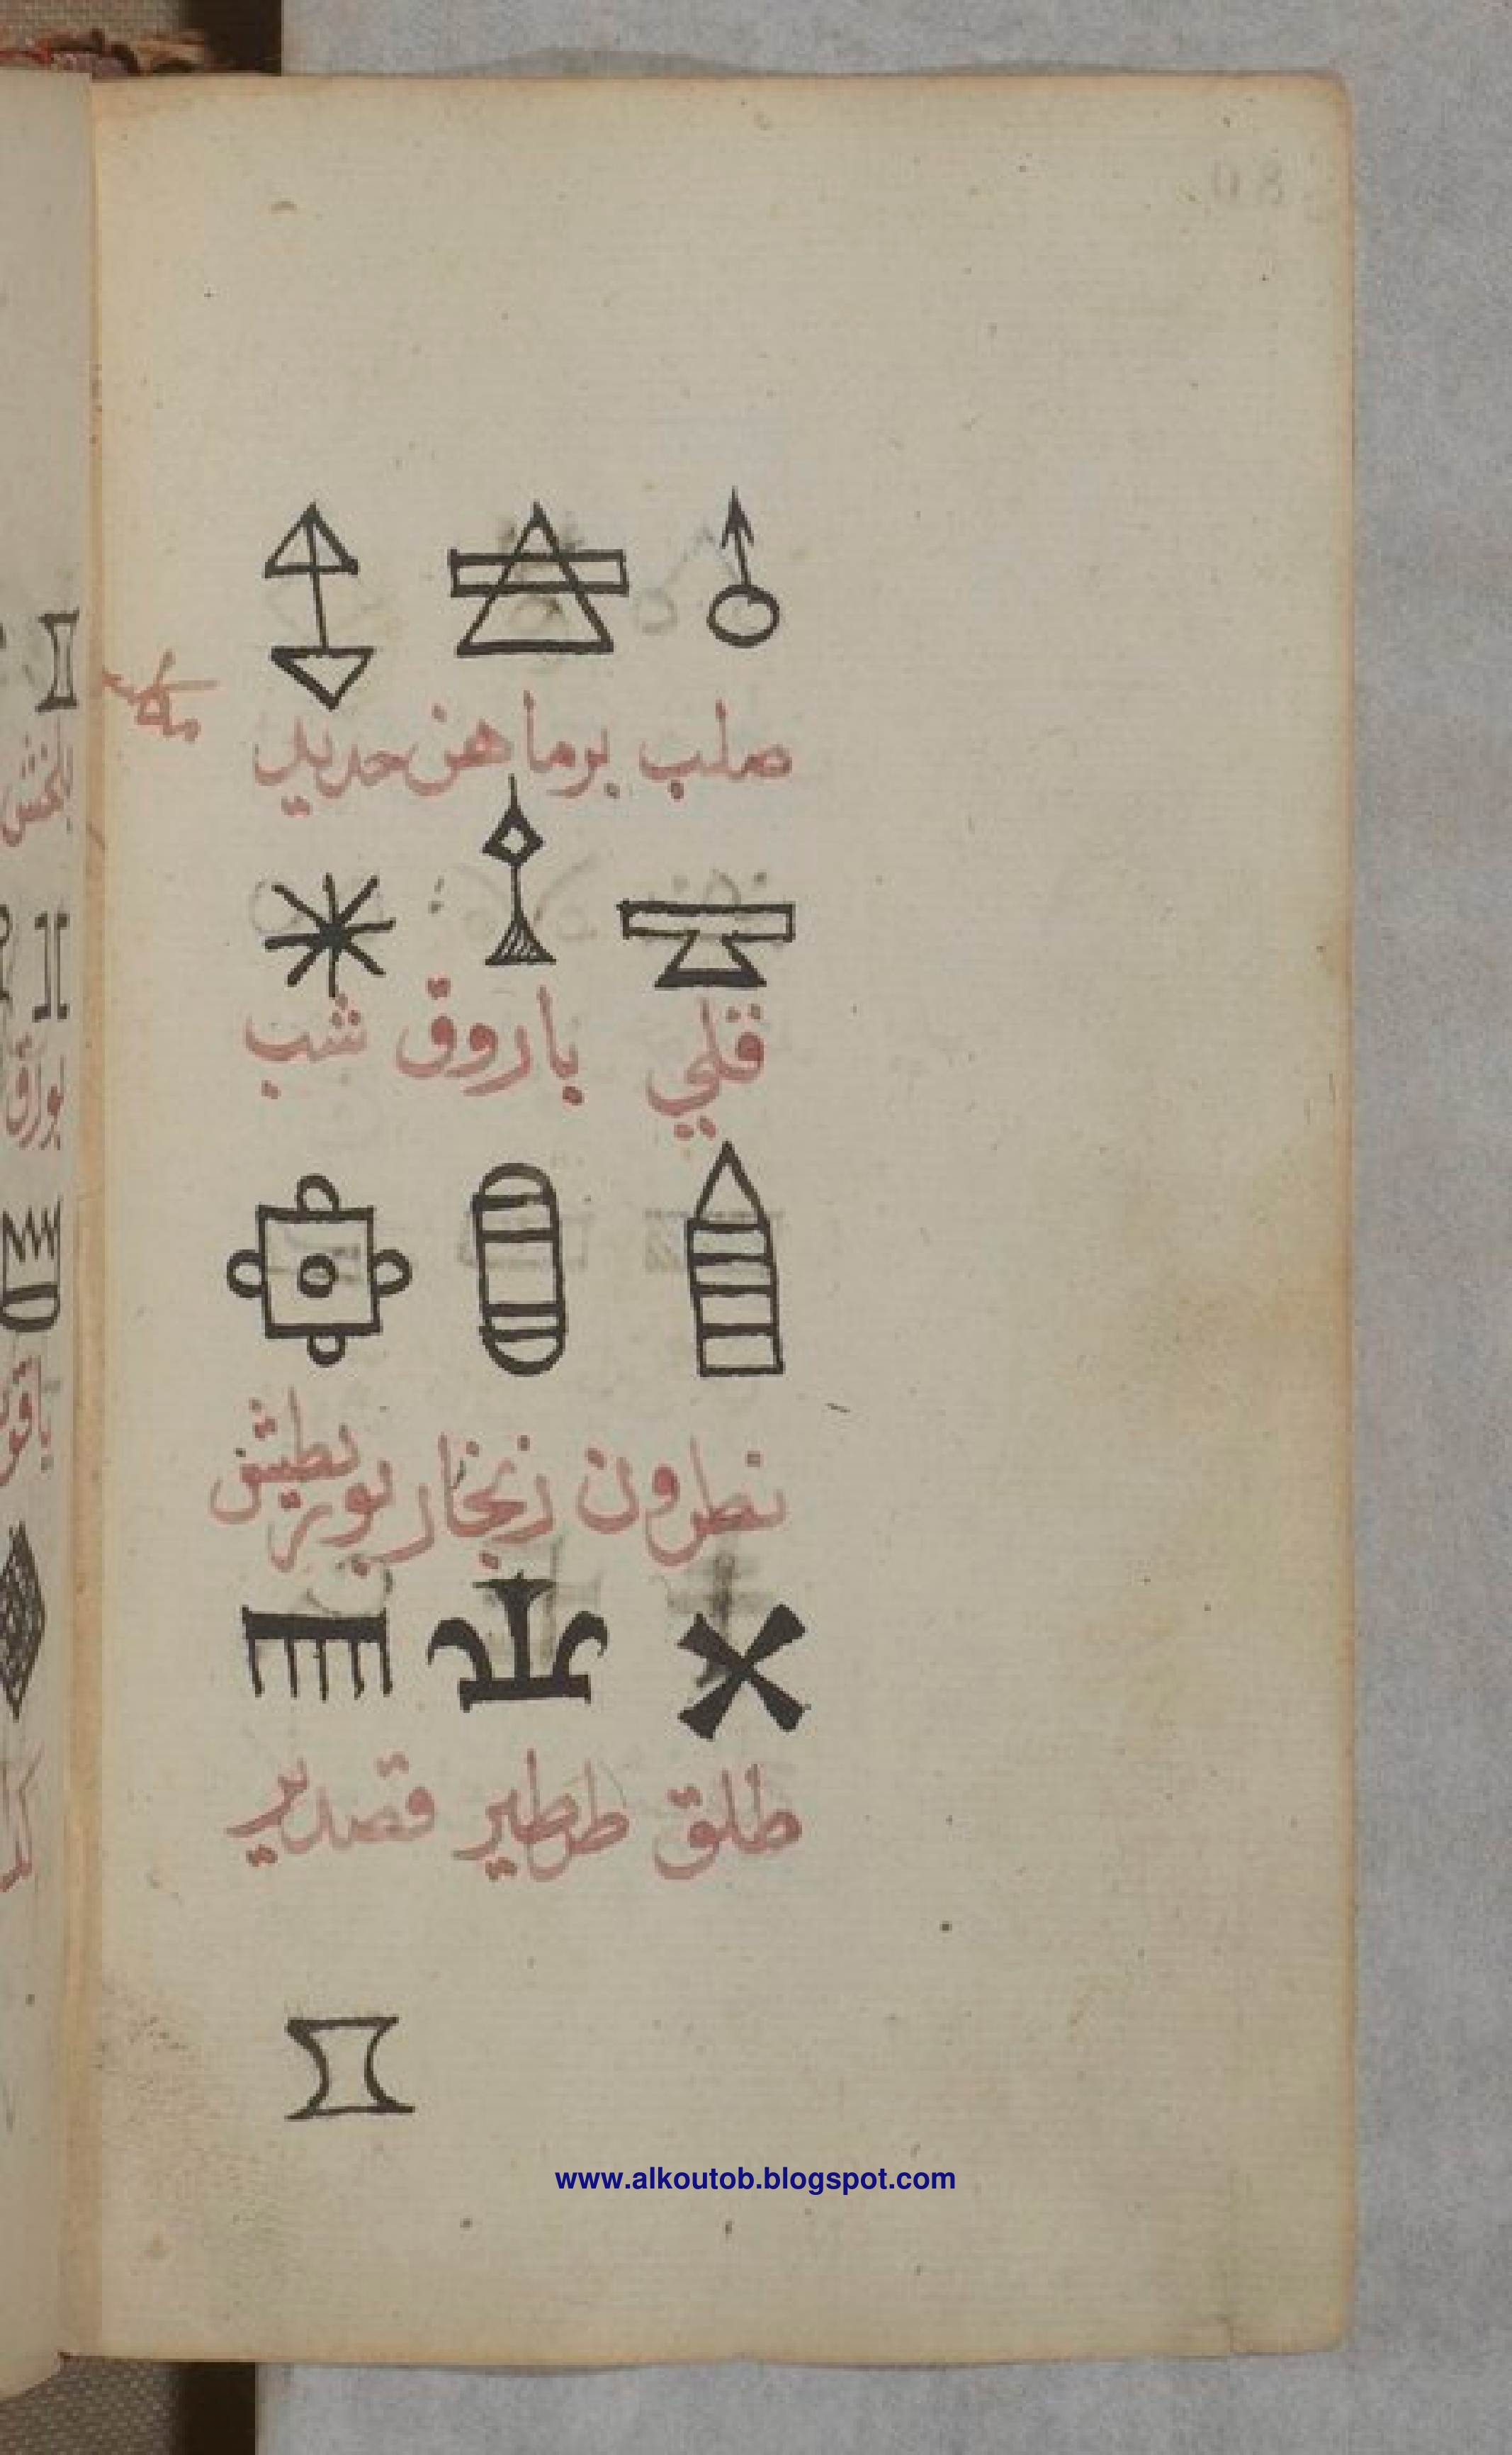 صلب برماهن حديد
قلي باروق شب
نطرون زنجار بوريطيش
طلق طرطير قصدير
www.alkoutob.blogspot.com